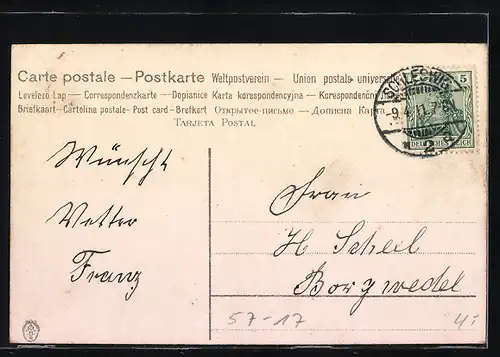 Carte postale — Postkarte Weltpostverein — Union postale universelle
Levelező-Lap — Correspondenzkarte — Dopisnice Karta korespondencyjna — Korespondenční
Briefkaart — Cartolina postale — Post card — Brefkort Открытое письмо — Дописна Карта
Tarjeta Postal
SCHLESWIG
9.4.11.7-8
2 a
5
DEUTSCHES REICH
Wünscht
Vetter
Franz
Frau
H Scheel
Borgwedel
57-17